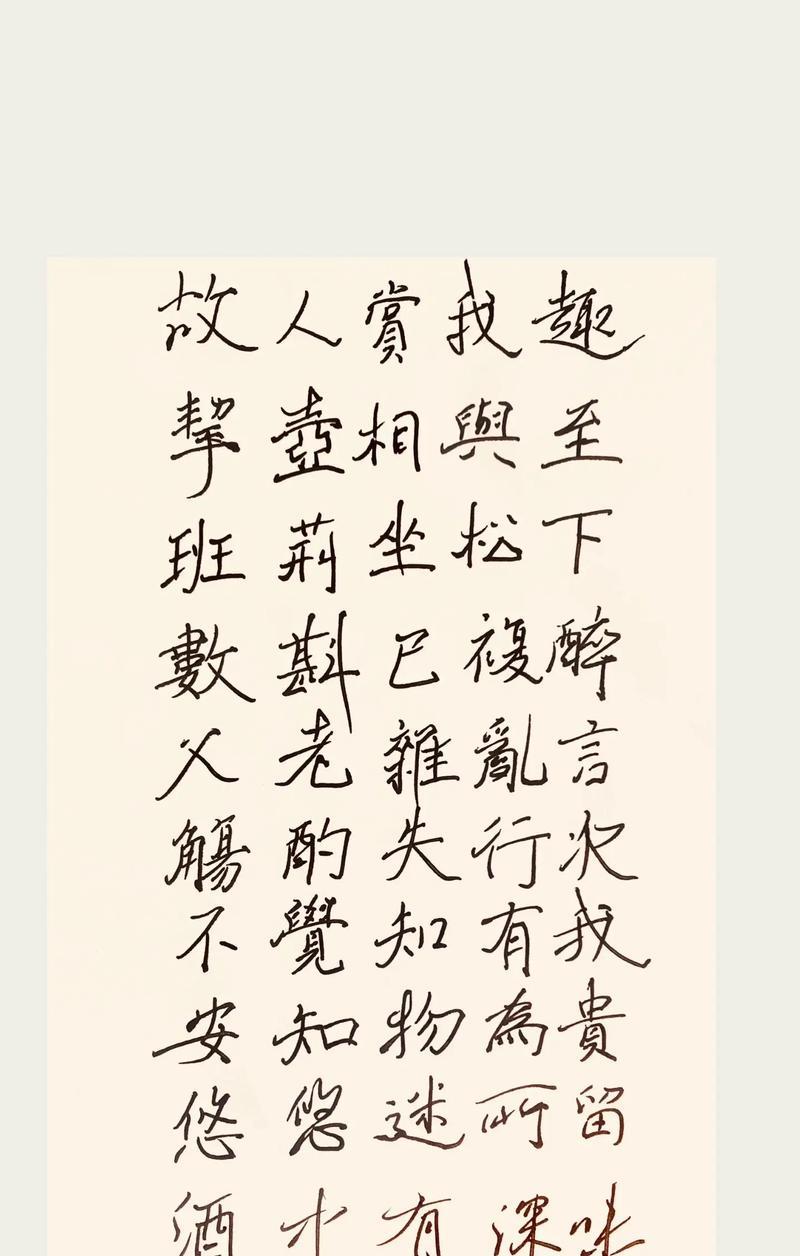 故人賞我趣
挈壺相與至
班荊坐松下
數斟已復醉
父老雜亂言
觴酌失行次
不覺知有我
安知物為貴
悠悠迷所留
酒中有深味